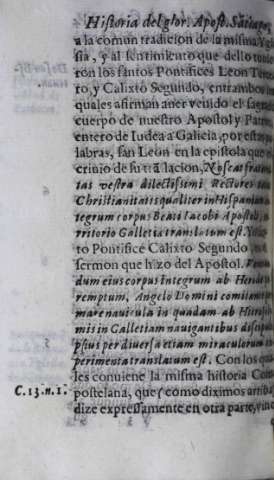 Historia del glor. Apost. Sãtiago,
a la comun tradicion de la misma Ygle
sia, y al sentimiento que dello tuuie
ron los santos Pontifices Leon Terce
ro, y Calixto Segundo, entrambos los
quales afirman auer venido el sagrado
cuerpo de nuestro Apostol y Patron
entero de Iudea a Galicia, por estas pa
labras, san Leon en la epistola que es
criuio de su trãslacion, Noscat fraterni
tas vestra dilectissimi Rectores totius
Christianitatis qualiter in Hispaniam in
tegrum corpus Beati Iacobi Apostoli, in
rritorio Galletia translatum est. Y el san
to Pontifice Calixto Segundo, en el
sermon que hizo del Apostol.
dum eius corpus integrum ab Herode
remptum, Angelo Domini comitante per
mare nauicula in quadam ab Hierosoly
mis in Galletiam nauigantibus discipulis
ipsius per diuersa etiam miraculorum ex
perimenta translatum est. Con los qua
les conuiene la misma historia Com
C. 13. n. 1. postelana, que (como diximos arriba)
dize expressamente en otra parte,